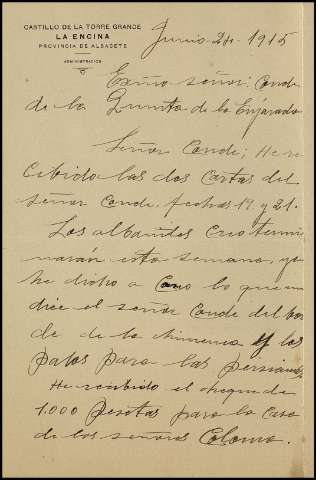 CASTILLO DE LA TORRE GRANDE
LA ENCINA
PROVINCIA DE ALBACETE
ADMINISTRACION
Junio 24 1915
Exmo señor: Conde
de la Quinta de la Enjarada
Señor Conde; He re
cibido las dos Cartas del
señor Conde fechas 19 y 21.
Los albañiles Creo termi
narán esta semana, ya
he dicho a Cano lo que me
dice el señor Conde del
de de la chimenea y los
palos para las persianas,
He recibido el cheque de
1.000 Pesetas para la Casa
de los señores Coloma.